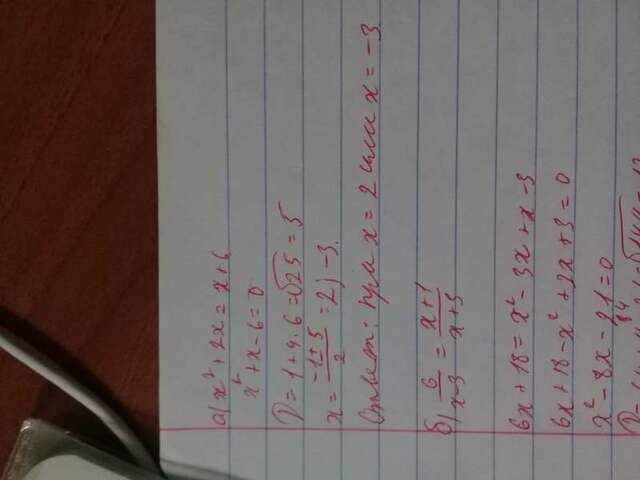 а) x² + 2x = x + 6
x² + x - 6 = 0
D = 1 + 4 · 6 = √25 = 5
x = (-1 ± 5)/2 = 2; -3.
Ответ: при x = 2 или x = -3.
б) 6/(x-3) = (x+1)/(x+3)
6x + 18 = x² - 3x + x - 3
6x + 18 - x² + 2x + 3 = 0
x² - 8x - 21 = 0